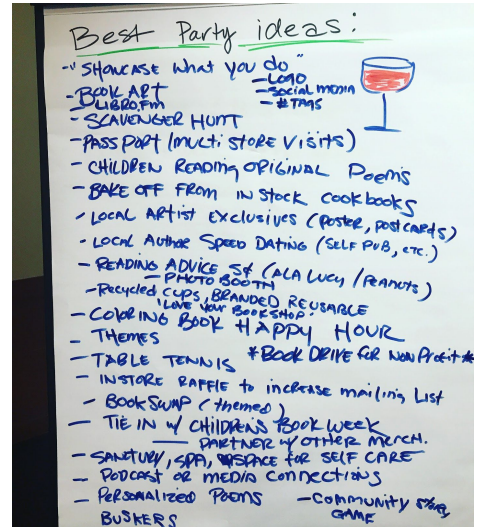 Best Party ideas:
- "SHOWCASE what you do"
- LOGO
- BOOK ART
- SOCIAL MEDIA
LIBRO.FM
- #TAGS
- SCAVENGER HUNT
- PASSPORT (MULTI STORE VISITS)
- CHILDREN READING ORIGINAL Poems
- BAKE OFF FROM IN STOCK COOKBOOKS
- LOCAL ARTIST EXCLUSIVES (POSTER, POSTCARDS)
- LOCAL AUTHOR SPEED DATING (SELF PUB, ETC.)
- READING ADVICE 5¢ (ALA LUCY / PEANUTS)
- PHOTO BOOTH
- Recycled CUPS, BRANDED REUSABLE
'LOVE YOUR BOOKSHOP'
- COLORING BOOK HAPPY HOUR
- THEMES
*BOOK DRIVE for NON Profit*
- TABLE TENNIS
- INSTORE RAFFLE to increase mailing List
- BOOK SWAP (themed)
- TIE IN w/ CHILDREN'S BOOK WEEK
- PARTNER w/ OTHER MERCH.
- SANCTURY, SPA, SPACE for SELF CARE
- PODCAST OR MEDIA CONNECTIONS
- PERSONALIZED POEMS
- Community
GAME
BUSKERS